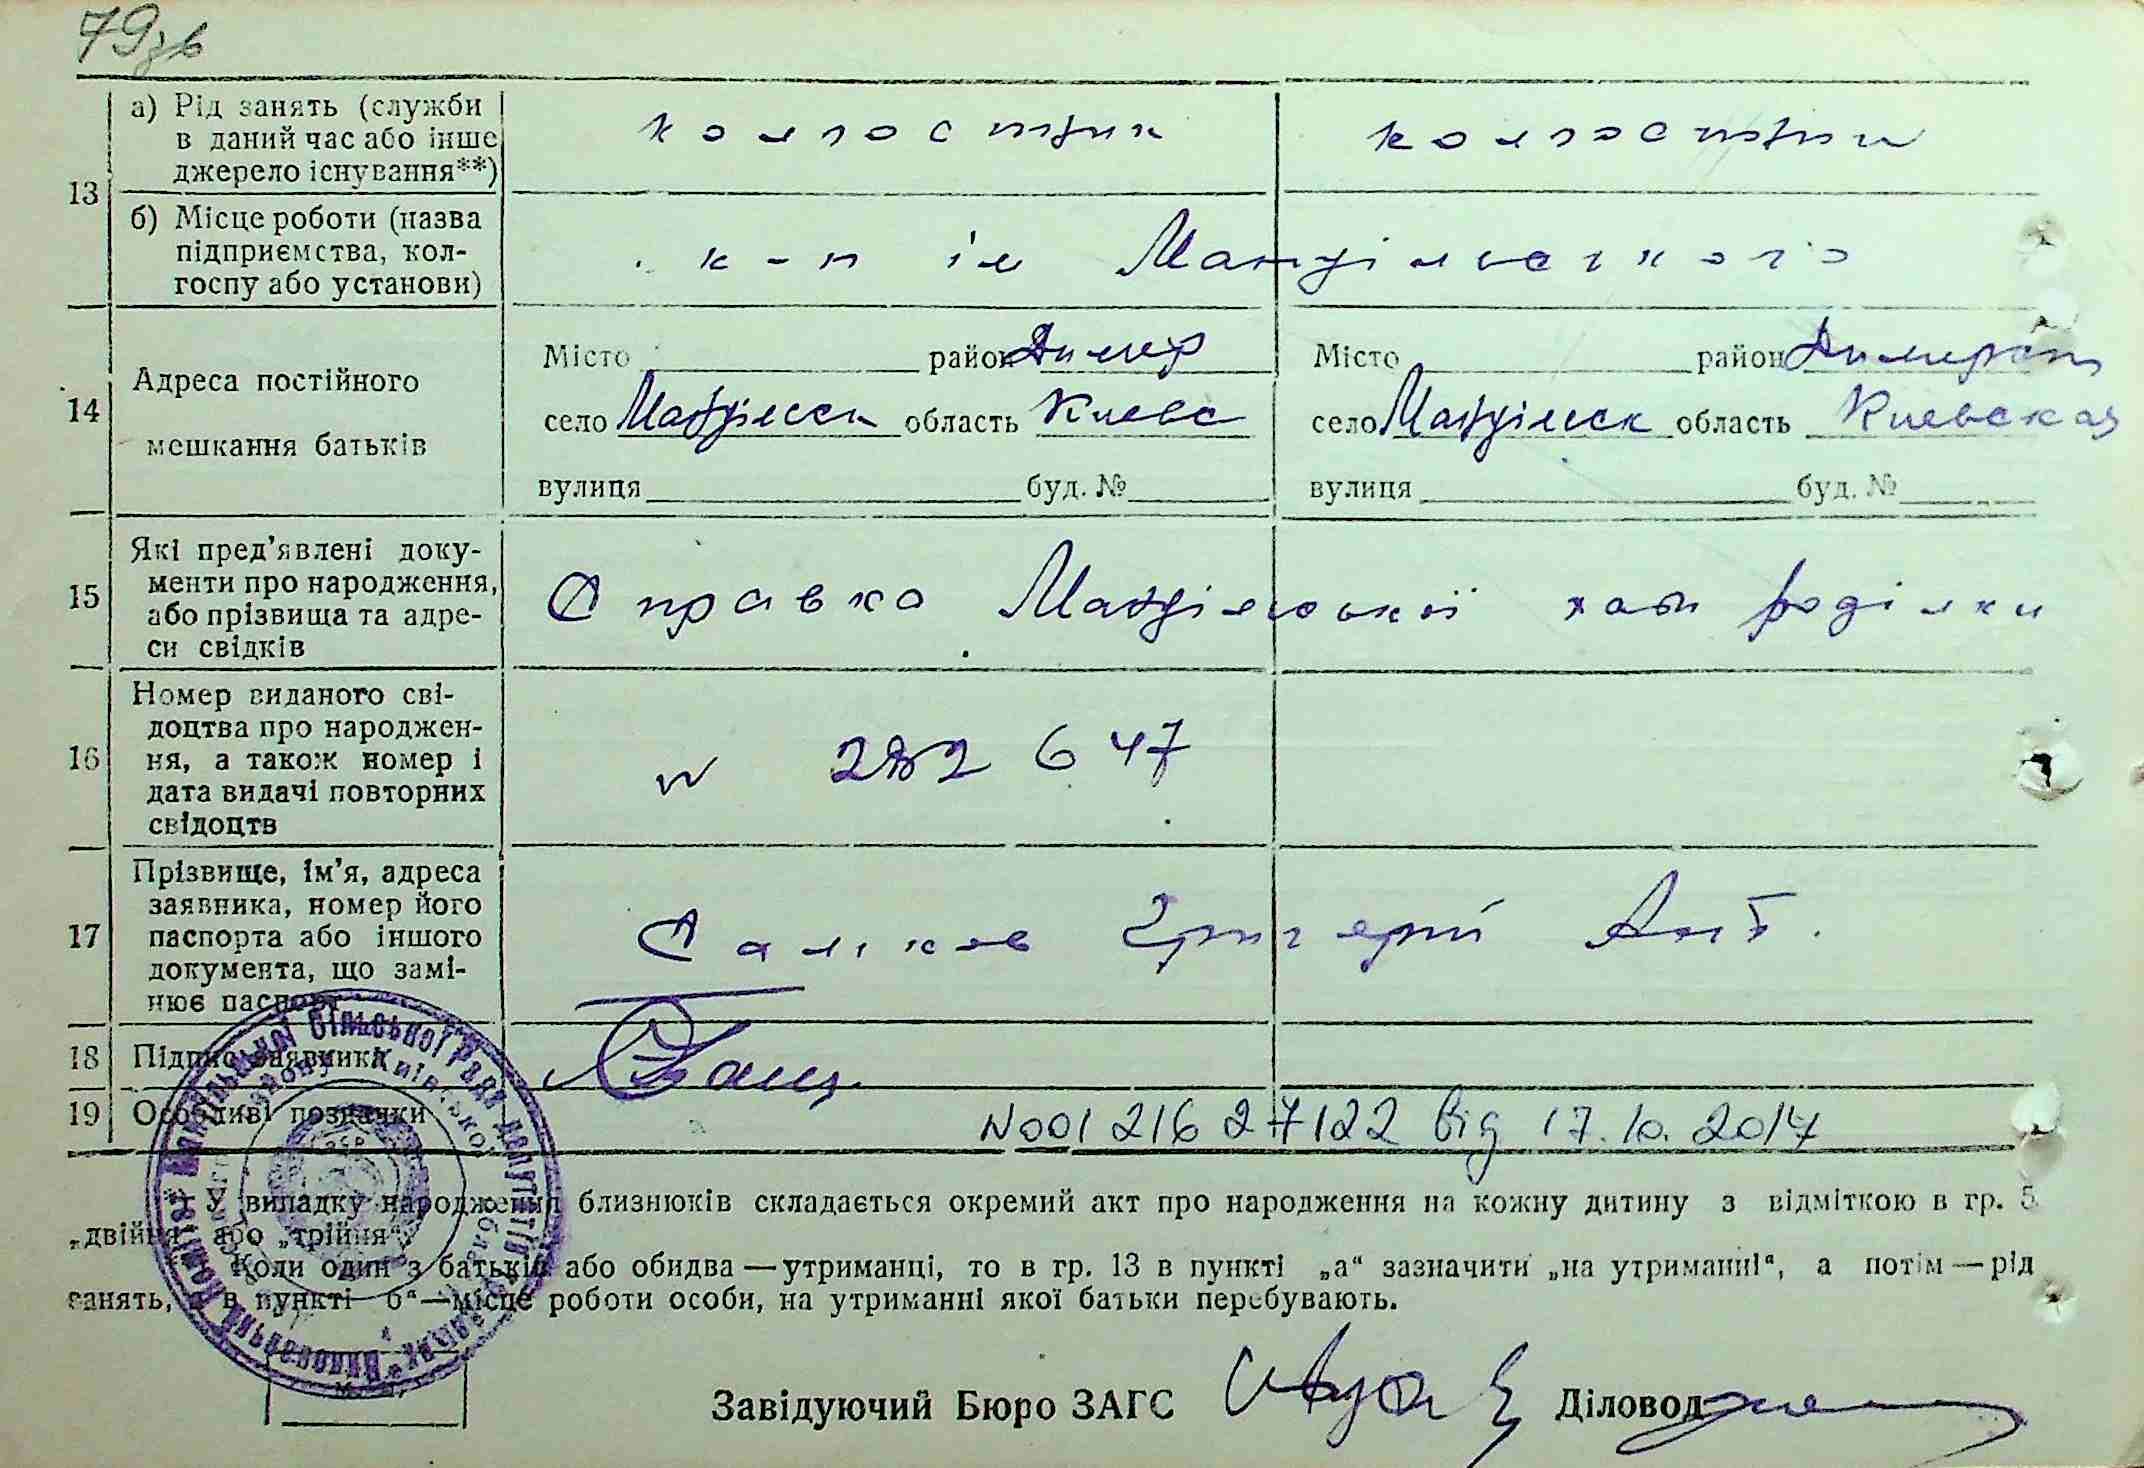 79зв
13
а) Рід занять (служби
в даний час або інше
джерело існування**)
колгоспник
колгоспни
б) Місце роботи (назва
підприємства, кол-
госпу або установи)
к-п ім
14
Адреса постійного
мешкання батьків
Місто район Димер
село область Киевс
вулиця буд. №
Місто район
село область Киевская
вулиця буд. №
15
Які пред’явлені доку-
менти про народження,
або прізвища та адре-
си свідків
Справка хати роділки
16
Номер виданого сві-
доцтва про народжен-
ня, а також номер і
дата видачі повторних
свідоцтв
N 282 647
17
Прізвище, ім’я, адреса
заявника, номер його
паспорта або іншого
документа, що замі-
нює паспорт
Григорий Ант.
18
Підпис заявника
19
Особливі позначки
N00121627122 від 17.10.2014
*) У випадку народження близнюків складається окремий акт про народження на кожну дитину з відміткою в гр. 5
„двійня“ або „трійня“.
**) Коли один з батьків або обидва — утриманці, то в гр. 13 в пункті „а“ зазначити „на утриманні“, а потім — рід
занять, а в пункті „б“ — місце роботи особи, на утриманні якої батьки перебувають.
Завідуючий Бюро ЗАГС
Діловод